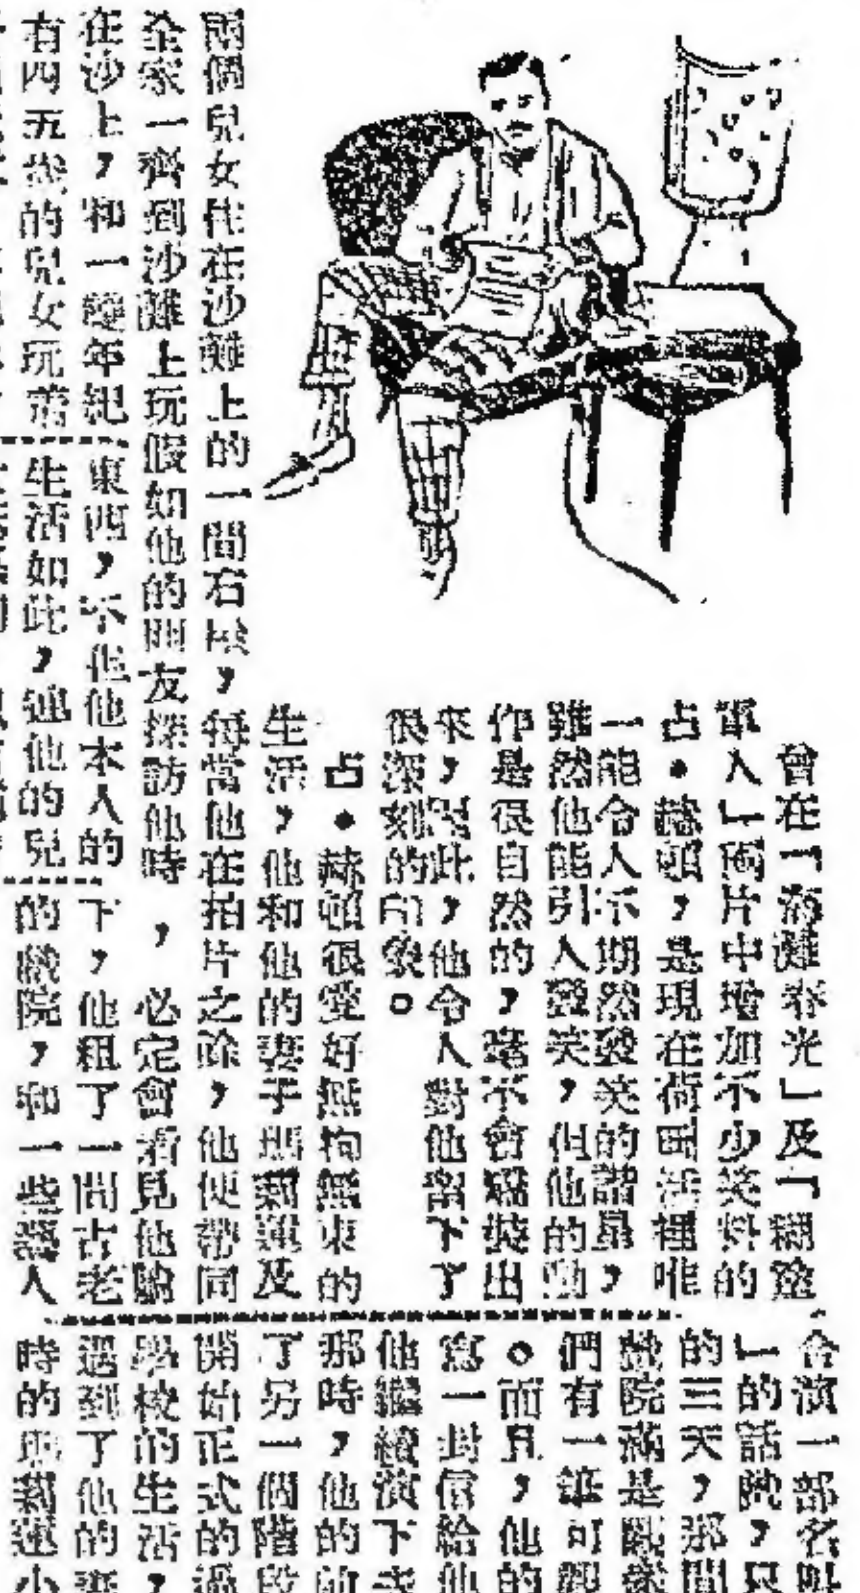 曾在「海灘春光」及「糊塗
軍人」兩片中增加不少笑料的
占•赫頓,是現在荷里活裡唯
一能令人不期然發笑的諧星,
雖然他能引人發笑,但他的動
作是很自然的,毫不會裝出
來,因此,他令人對他留下了
很深刻的印象。
占•赫頓很愛好無拘無束的
生活,他和他的妻子瑪莉蓮及
兩個兒女住在沙灘上的一間石屋,每當他在拍片之餘,他便帶同
全家一齊到沙灘上玩假如他的朋友探訪他時,必定會看見他躺
在沙上,和一雙年紀
有四五歲的兒女玩着
東西,不但他本人的
生活如此,連他的兒
下,他租了一間古老
的戲院,和一些藝人
合演一部名叫
」的話劇,只
的三天,那間
戲院滿是觀衆
們有一筆可觀
。而且,他的
寫一封信給他
他繼續演下去
那時,他的前
了另一個階段
開始正式的過
學校的生活,
遇到了他的妻
時的瑪莉蓮小